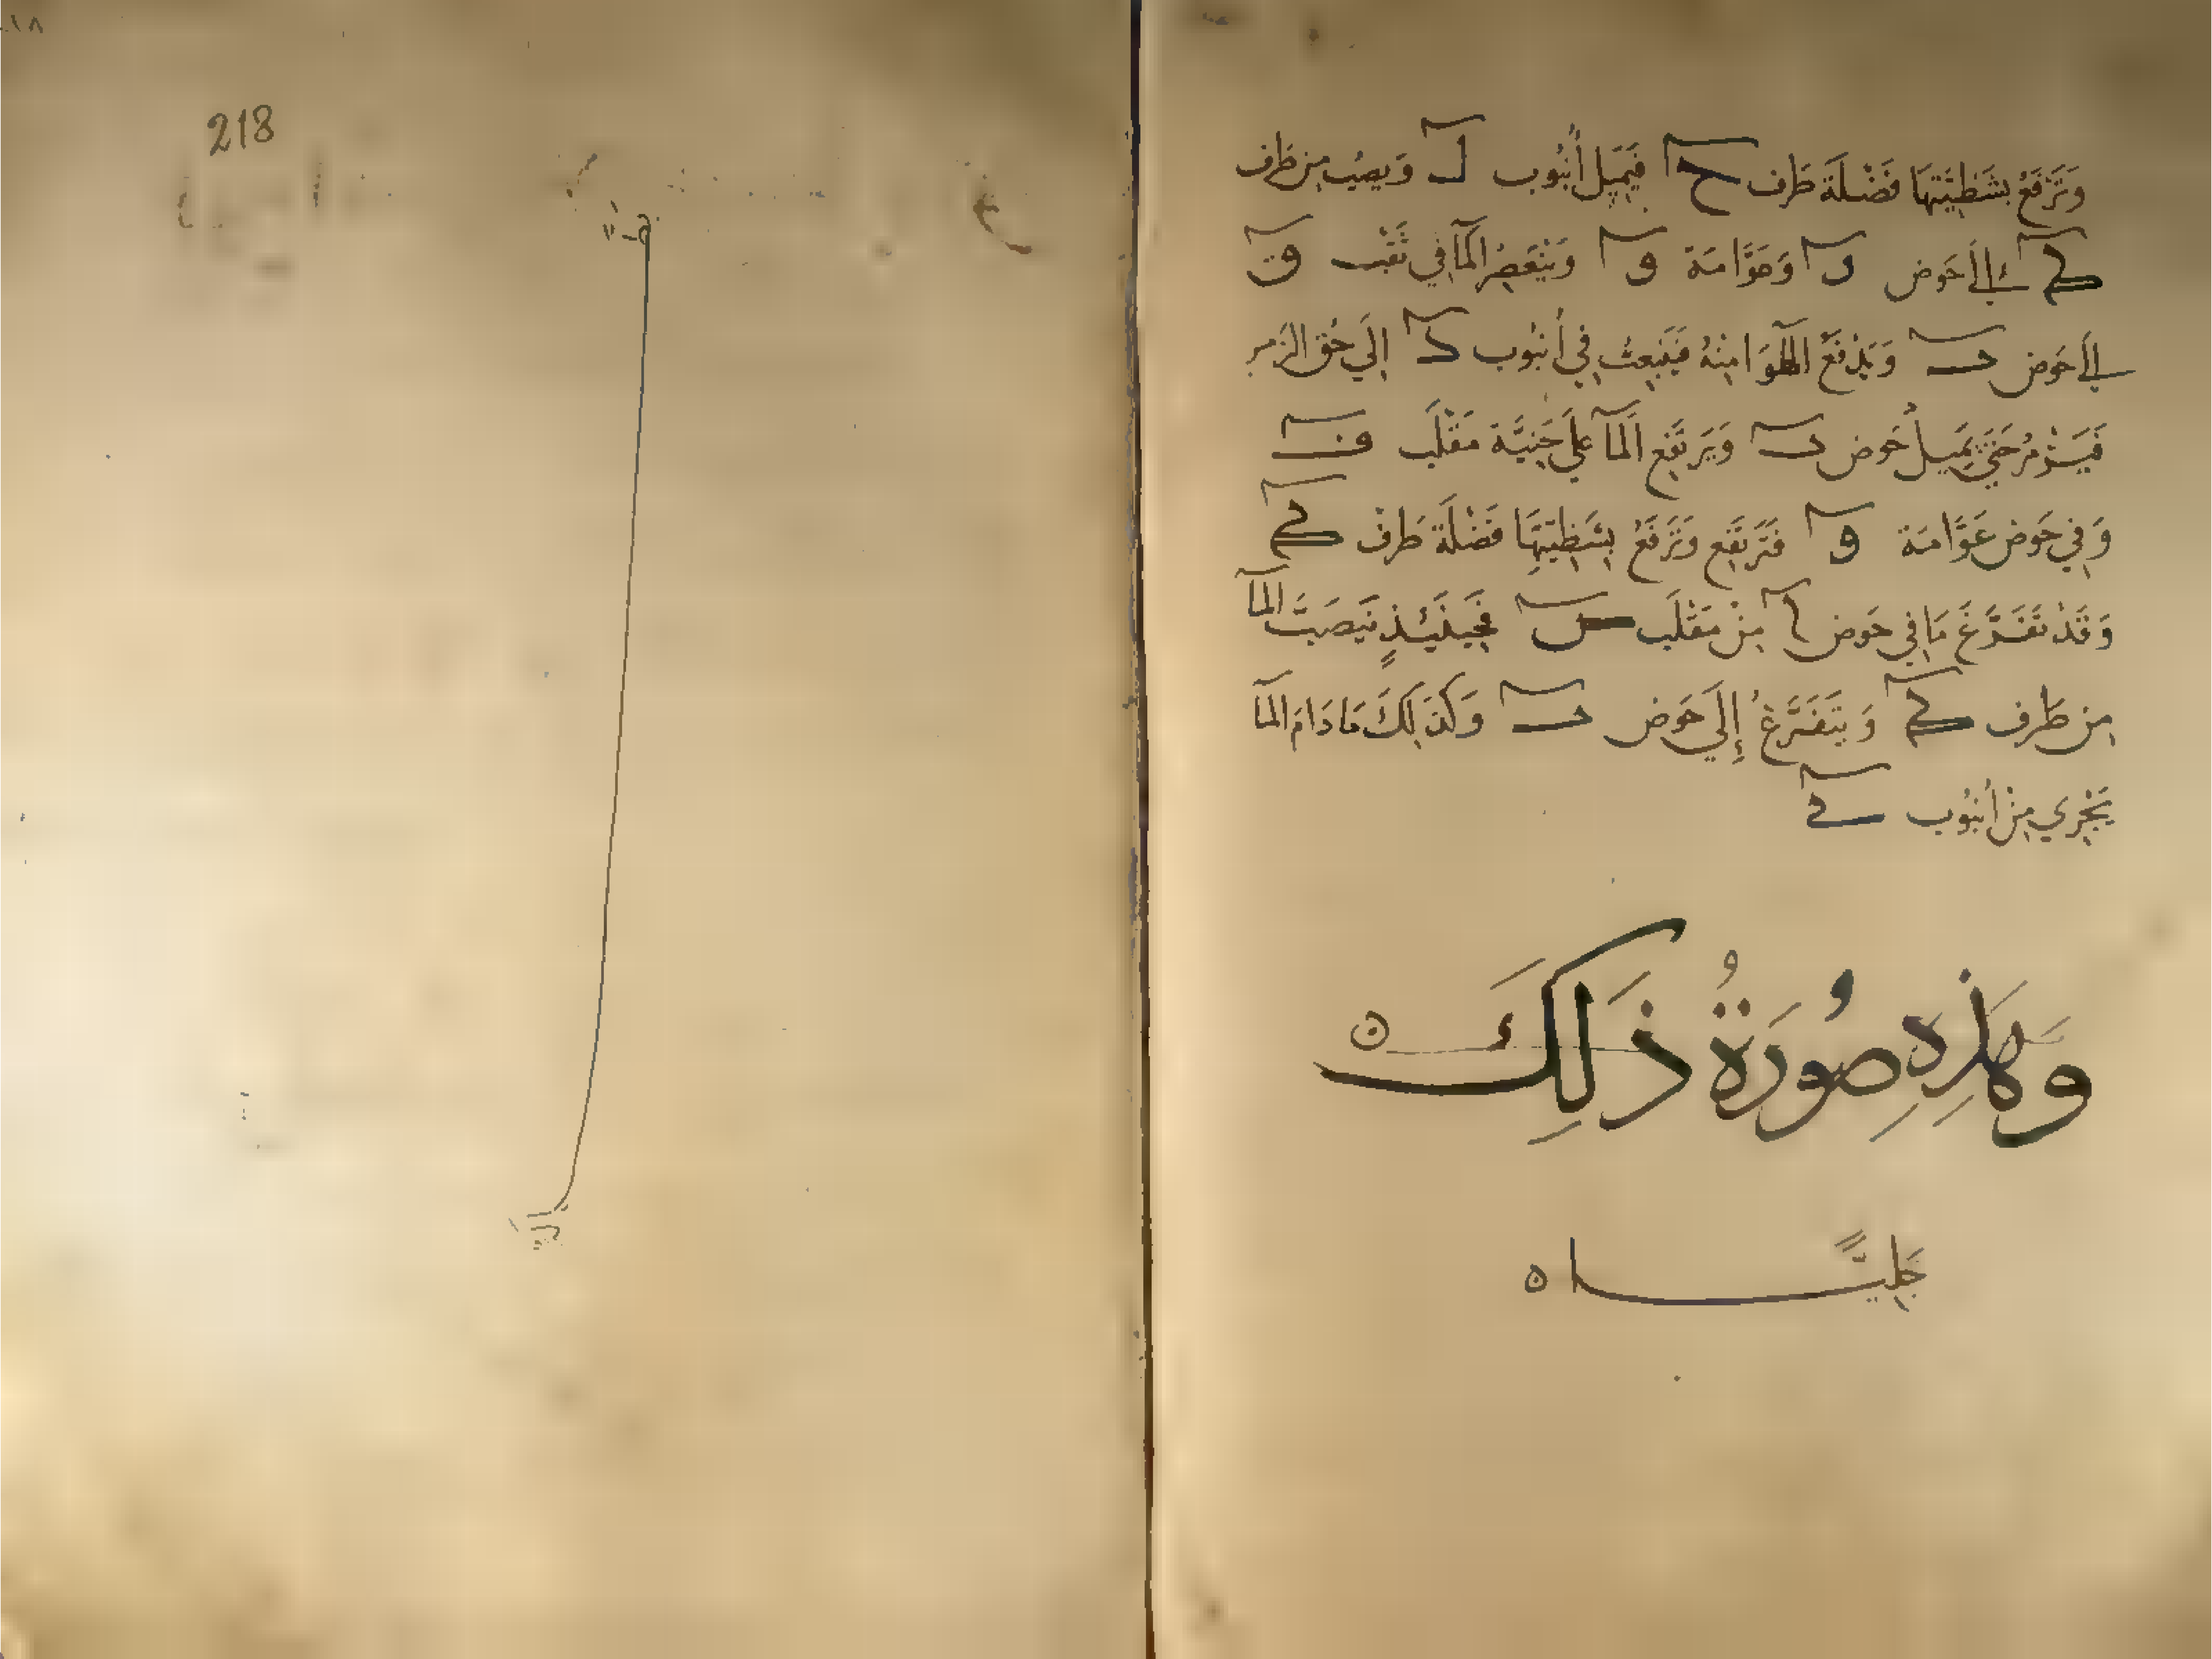 وَتَرْفَعُ بِشَظِيَّتِهَا فَضْلَة طَرف ح فَيَمِيل أُنْبُوب ل وَيَصُب مِن طَرف
ك إلى حَوض و وَعَوَّامَة و وَيَنْعَصِرُ المآ في ثَقْب ق
إلى حَوض ب وَيَدْفَع الهَوَا مِنْهُ فَيَنْبَعِث في أُنْبُوب د إلَي حُق الزمر
فَيَزْمُر حَتَي يَمِيل حَوض ب وَيَرتَفِع المآ علي جَنبيَّة مَقْلَب ف
وَفي حَوض عَوَّامَة و فَتَرتَفِع وَتَرفَعُ بِشَظِيَّتِهَا فَضْلَة طَرف ك
وَقَدْ تَفَرَّغَ مَا في حَوض ا مِنْ مَقْلَب س فَحِينَئِذٍ يَنصَبّ المآ
مِن طَرف ك وَيَتَفَرَّغُ إِلَي حَوض ب وَكَذَلِكَ مَا دَامَ المآ
يَجْرِي مِنْ أُنبُوب ي
وَهَذِهِ صُورَةُ ذَلِكَ ٥
جَلِيًّا ٥
218